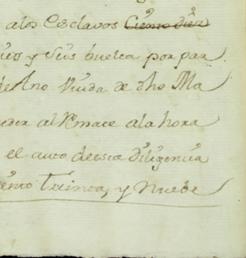 a los Esclavos Ciento diez
y Seis buelta por par
de Ano Viuda de dho Ma
al Remate a la hora
el auto de esta Diligencia
ento Treinta, y Nuebe